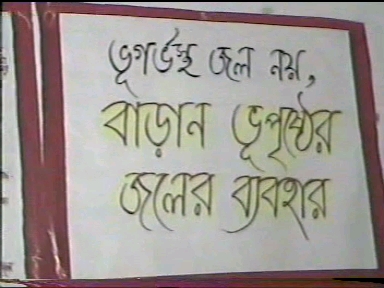 ভূগর্ভস্থ জল নয়,
বাড়ান ভূপৃষ্ঠের
জলের ব্যবহার